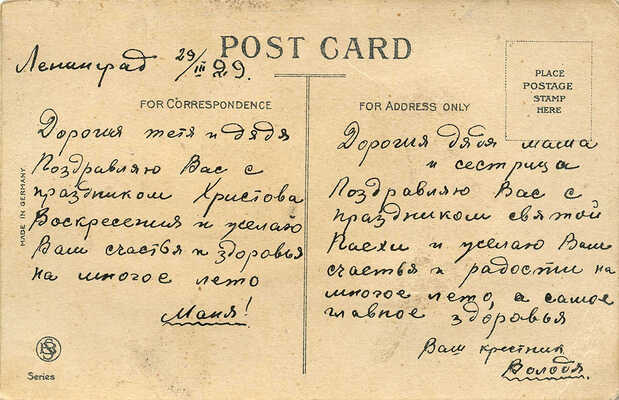 POST CARD
Ленинград 29/III 29.
PLACE
POSTAGE
STAMP
HERE
FOR CORRESPONDENCE
Дорогия тетя и дядя
Поздравляю Вас с
праздником Христова
Воскресения и желаю
Вам счастья и здоровья
на многое лето
Маня!
FOR ADDRESS ONLY
Дорогия дядя маша
и сестрица
Поздравляю Вас с
праздником святой
Пасхи и желаю Вам
счастья и радости на
многое лето, а самое
главное здоровья
Ваш крестник
Володя.
MADE IN GERMANY
Series